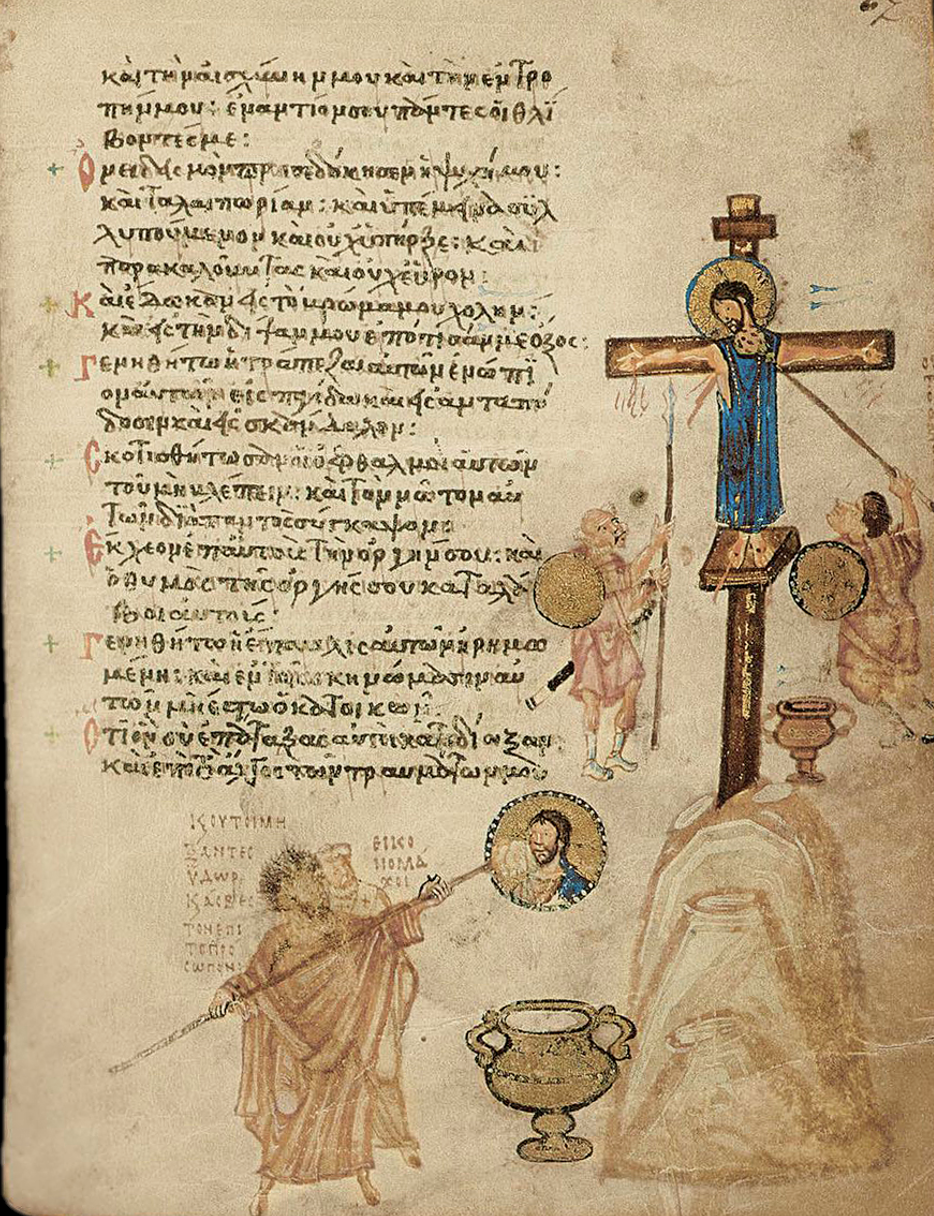 καὶ τὴν αἰσχύνην μου καὶ τὴν ἐντρο
πήν μου: ἐναντίον σου πάντες οἱ θλί
βοντές με:
Ὀνειδισμὸν προσεδόκησεν ἡ ψυχή μου:
καὶ ταλαιπωρίαν: καὶ ὑπέμεινα συλ
λυπούμενον καὶ οὐχ ὑπῆρξε: καὶ
παρακαλοῦντας καὶ οὐχ εὗρον:
Καὶ ἔδωκαν εἰς τὸ βρῶμά μου χολὴν:
καὶ εἰς τὴν δίψαν μου ἐπότισάν με ὄξος:
Γενηθήτω ἡ τράπεζα αὐτῶν ἐνώπι
ον αὐτῶν εἰς παγίδα καὶ εἰς ἀνταπό
δοσιν καὶ εἰς σκάνδαλον:
Σκοτισθήτωσαν οἱ ὀφθαλμοὶ αὐτῶν
τοῦ μὴ βλέπειν: καὶ τὸν νῶτον αὐ
τῶν διὰ παντὸς σύγκαμψον:
Ἔκχεον ἐπ' αὐτοὺς τὴν ὀργήν σου: καὶ
ὁ θυμὸς τῆς ὀργῆς σου καταλά
βοι αὐτούς:
Γενηθήτω ἡ ἔπαυλις αὐτῶν ἠρημω
μένη: καὶ ἐν τοῖς σκηνώμασιν αὐ
τῶν μὴ ἔστω ὁ κατοικῶν:
Ὅτι ὃν σὺ ἐπάταξας αὐτοὶ κατεδίωξαν:
καὶ ἐπὶ τὸ ἄλγος τῶν τραυμάτων μου
ΕΙΚΟ
ΝΟΜΑ
ΧΟΙ
ΥΔΩΡ
ΤΟΝ ΕΠΙ
ΤΟ ΠΡΟ
ΣΩΠΟΝ